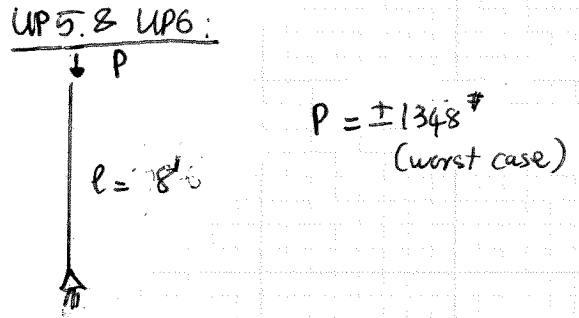 UP5. & UP6:
P
P = ±1348#
(worst case)
l = 8'